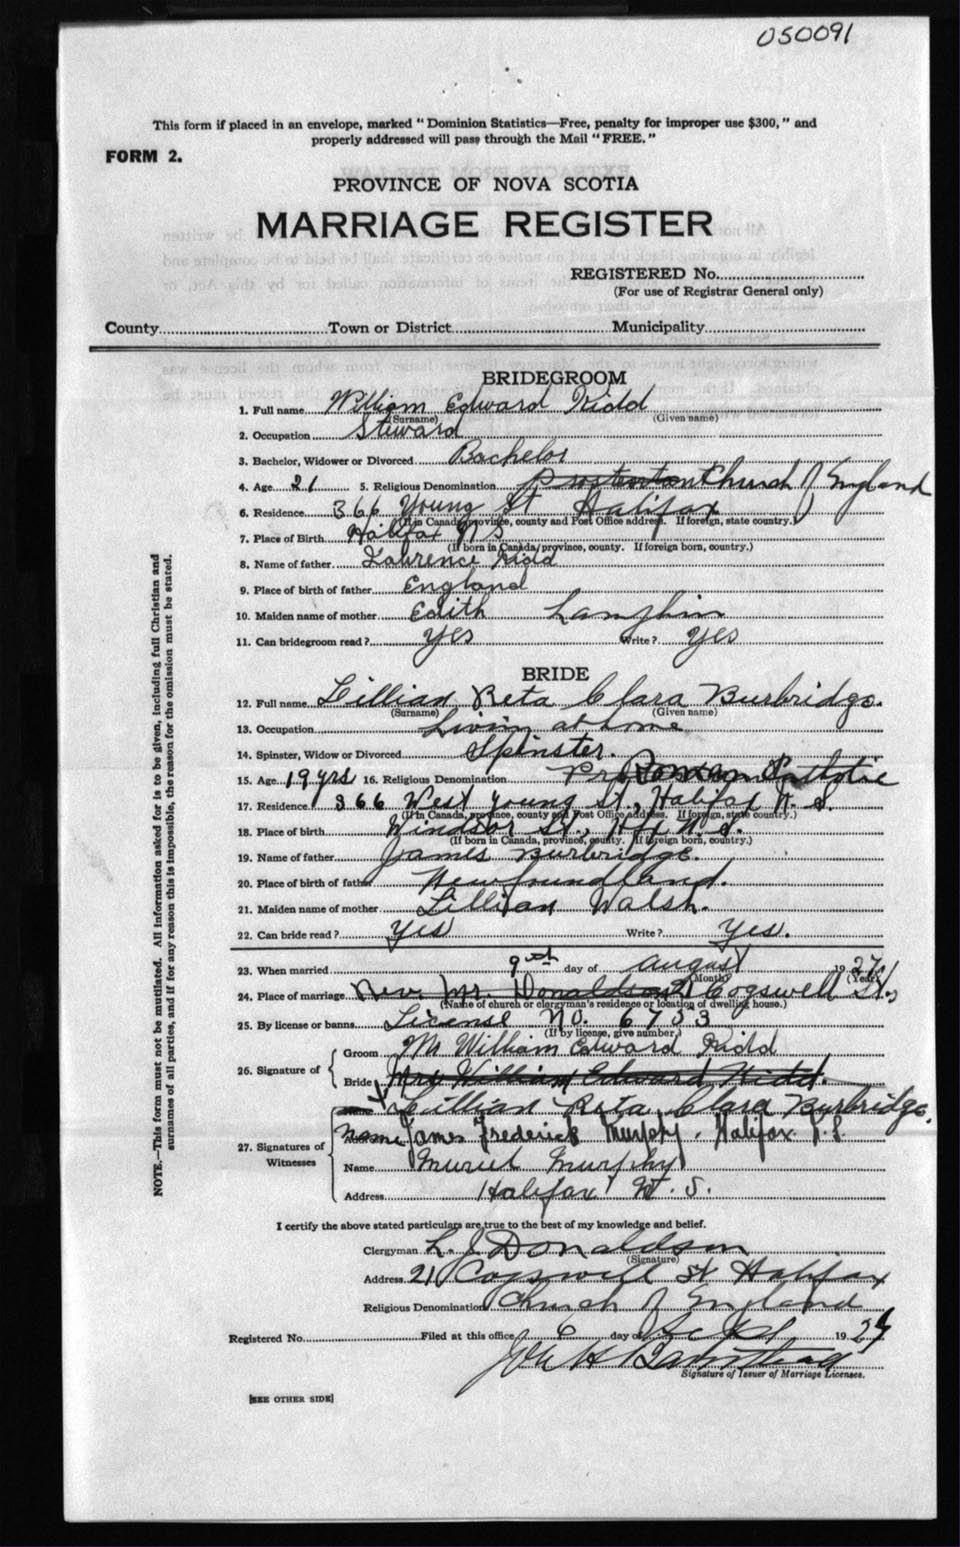 050091
This form if placed in an envelope, marked "Dominion Statistics—Free, penalty for improper use $300," and
properly addressed will pass through the Mail "FREE."
FORM 2.
PROVINCE OF NOVA SCOTIA
MARRIAGE REGISTER
REGISTERED No.
(For use of Registrar General only)
County Town or District Municipality
BRIDEGROOM
1. Full name William Edward Kidd
(Surname) (Given name)
2. Occupation Steward
3. Bachelor, Widower or Divorced Bachelor
4. Age 21 5. Religious Denomination Church of England
6. Residence 366 Young St Halifax
(If in Canada, province, county and Post Office address. If foreign, state country.)
7. Place of Birth Halifax N S
(If born in Canada, province, county. If foreign born, country.)
8. Name of father Lawrence Kidd
9. Place of birth of father England
10. Maiden name of mother Edith
11. Can bridegroom read? Yes Write? Yes
BRIDE
12. Full name Lillian Reta Clara Burbridge.
(Surname) (Given name)
13. Occupation Living at home
14. Spinster, Widow or Divorced Spinster.
15. Age 19 yrs 16. Religious Denomination Roman Catholic
17. Residence 366 West Young St., Halifax N. S.
(If in Canada, province, county and Post Office address. If foreign, state country.)
18. Place of birth Windsor St., Hfx N. S.
(If born in Canada, province, county. If foreign born, country.)
19. Name of father James Burbridge.
20. Place of birth of father Newfoundland.
21. Maiden name of mother Lillian Walsh.
22. Can bride read? Yes Write? Yes.
23. When married 9th day of August 19 27
(Month) (Year)
24. Place of marriage Rev. Mr. Donaldson 21 Cogswell St.,
(Name of church or clergyman's residence or location of dwelling house.)
25. By license or banns License No. 6733
(If by license, give number.)
26. Signature of Groom Mr William Edward Kidd
Bride Mrs William Edward Kidd.
Lillian Reta Clara Burbridge.
27. Signatures of Witnesses
Name James Frederick Murphy. Halifax N. S.
Name Muriel Murphy
Address Halifax N. S.
I certify the above stated particulars are true to the best of my knowledge and belief.
Clergyman L. J. Donaldson
(Signature)
Address 21 Cogswell St Halifax
Religious Denomination Church of England
Registered No. Filed at this office 6 day of Sept 19 27
Signature of Issuer of Marriage Licenses.
[SEE OTHER SIDE]
NOTE.—This form must not be mutilated. All information asked for is to be given, including full Christian and
surnames of all parties, and if for any reason this is impossible, the reason for the omission must be stated.